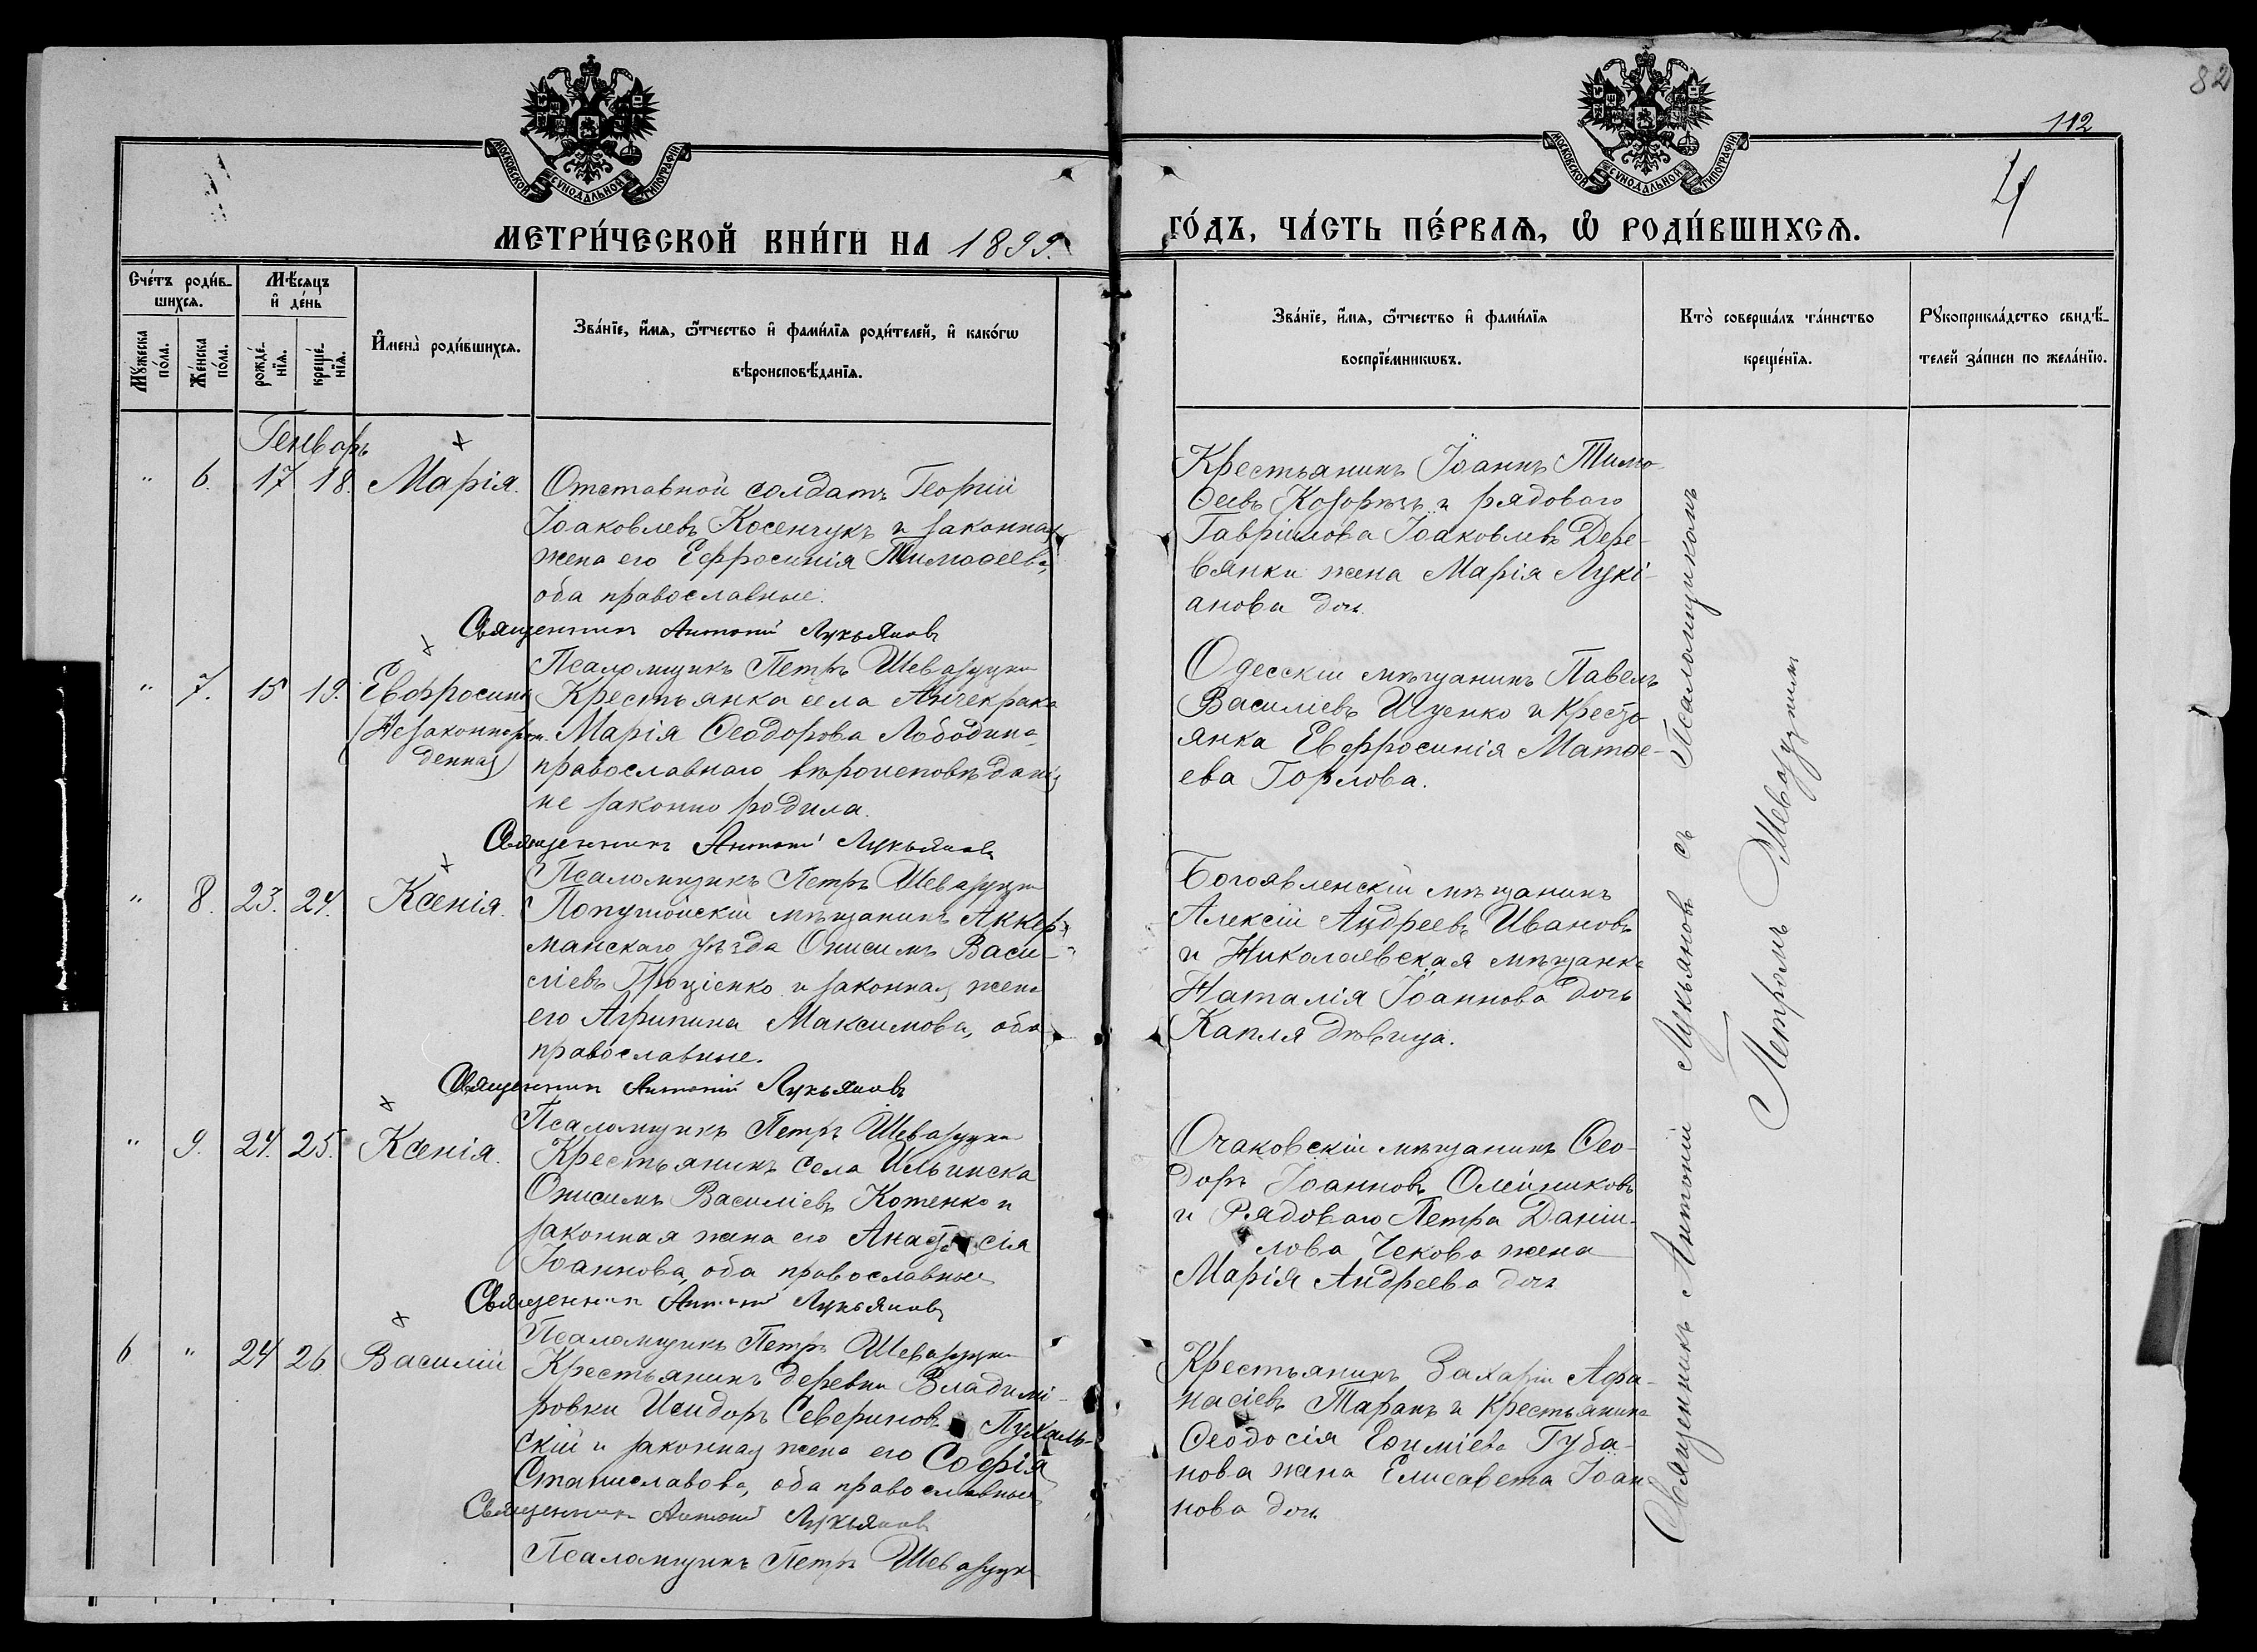 82
112
4
МОСКОВСКОЙ СѴНОДАЛЬНОЙ ТИПОГРАФІИ
МОСКОВСКОЙ СѴНОДАЛЬНОЙ ТИПОГРАФІИ
МЕТРИ́ЧЕСКОЙ КНИ́ГИ НА 1899.
ГО́ДЪ, ЧА́СТЬ ПЕ́РВАѦ, Ѡ҆ РОДИ́ВШИХСѦ.
Сче́тъ роди́в-
шихсѧ.
Мѣ́сѧцъ
и҆ де́нь
Мꙋ́жеска
по́ла.
Же́нска
по́ла.
рожде́-
нїѧ.
креще́-
нїѧ.
И҆мена̀ роди́вшихсѧ.
Зва́нїе, и҆́мѧ, ѻ҆́тчество и҆ фами́лїѧ роди́телей, и҆ како́гѡ
вѣроисповѣ́данїѧ.
Зва́нїе, и҆́мѧ, ѻ҆́тчество и҆ фами́лїѧ
воспрїе́мникѡвъ.
Кто̀ соверша́лъ та́инство
креще́нїѧ.
Рꙋкоприкла́дство свидѣ́-
телей за́писи по жела́нїю.
Генварь
" 6. 17 18. Марія.
Отставной солдатъ Георгій
Іоаковлевъ Косенчукъ и законная
жена его Ефросинія Тимоѳеева,
оба православные.
Священникъ Антоній Лукьяновъ
Псаломщикъ Петръ
Крестьянинъ Іоаннъ Тимо-
ѳеевъ и рядового
Гавріилова Іоаковлевъ Дере-
вянки жена Марія Лукі-
анова дочь
" 7. 15 19. Евфросинія
(Незаконнорож-
денная)
Крестьянка села Анчекрака
Марія Ѳеодорова Лободина,
православнаго вѣроисповѣданія
не законно родила.
Священникъ Антоній Лукьяновъ
Псаломщикъ Петръ
Одесскій мѣщанинъ Павелъ
Василіевъ Ищенко и Кресть-
янка Евфросинія Матѳе-
ева Горлова.
" 8. 23. 24. Ксенія.
мѣщанинъ Аккер-
манскаго уѣзда Онисимъ Васи-
ліевъ Гроціенко и законная жена
его Агрипина Максимова, оба
православные.
Священникъ Антоній Лукьяновъ
Псаломщикъ Петръ
Богоявленскій мѣщанинъ
Алексій Андреевъ Ивановъ
и Николаевская мѣщанка
Наталія Іоаннова дочь
Капля дѣвица.
" 9. 24. 25. Ксенія.
Крестьянинъ села Ильинска
Онисимъ Василіевъ Котенко и
законная жена его Анастасія
Іоаннова, оба православные
Священникъ Антоній Лукьяновъ
Псаломщикъ Петръ
Очаковскій мѣщанинъ Ѳео-
доръ Іоанновъ Олейниковъ
и Рядового Петра Даніи-
лова Чекова жена
Марія Андреева дочь
6 " 24 26. Василій
Крестьянинъ деревни Владимі-
ровки Исидоръ Севериновъ Пухаль-
скій и законная жена его Софія
Станиславова, оба православные
Священникъ Антоній Лукьяновъ
Псаломщикъ Петръ
Крестьянинъ Захарій Афа-
насіевъ Таранъ и Крестьянина
Ѳеодосія Ефиміева Губа-
нова жена Елисавета Іоан-
нова дочь
Священникъ Антоній Лукьяновъ съ Псаломщикомъ
Петромъ